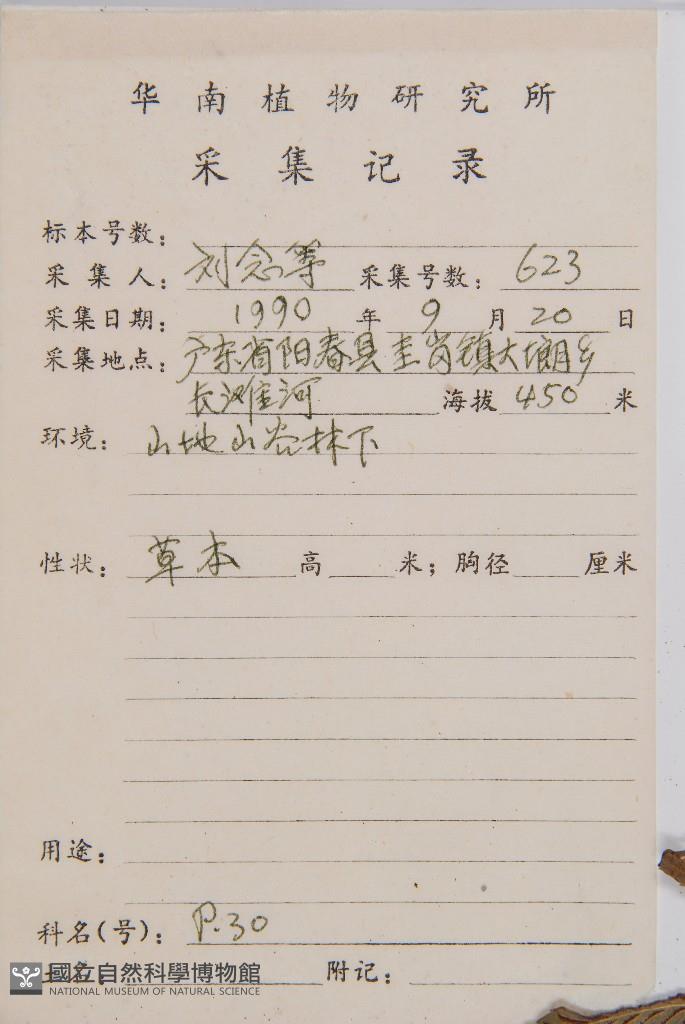 华南植物研究所
采集记录
标本号数：
采集人：刘念等 采集号数：623
采集日期：1990年9月20日
采集地点：广东省阳春县圭岗镇大塱乡
长滩 河 海拔 450 米
环境：山地山谷林下
性状：草本 高 米；胸径 厘米
用途：
科名(号)：P.30
附记：
國立自然科學博物館
NATIONAL MUSEUM OF NATURAL SCIENCE